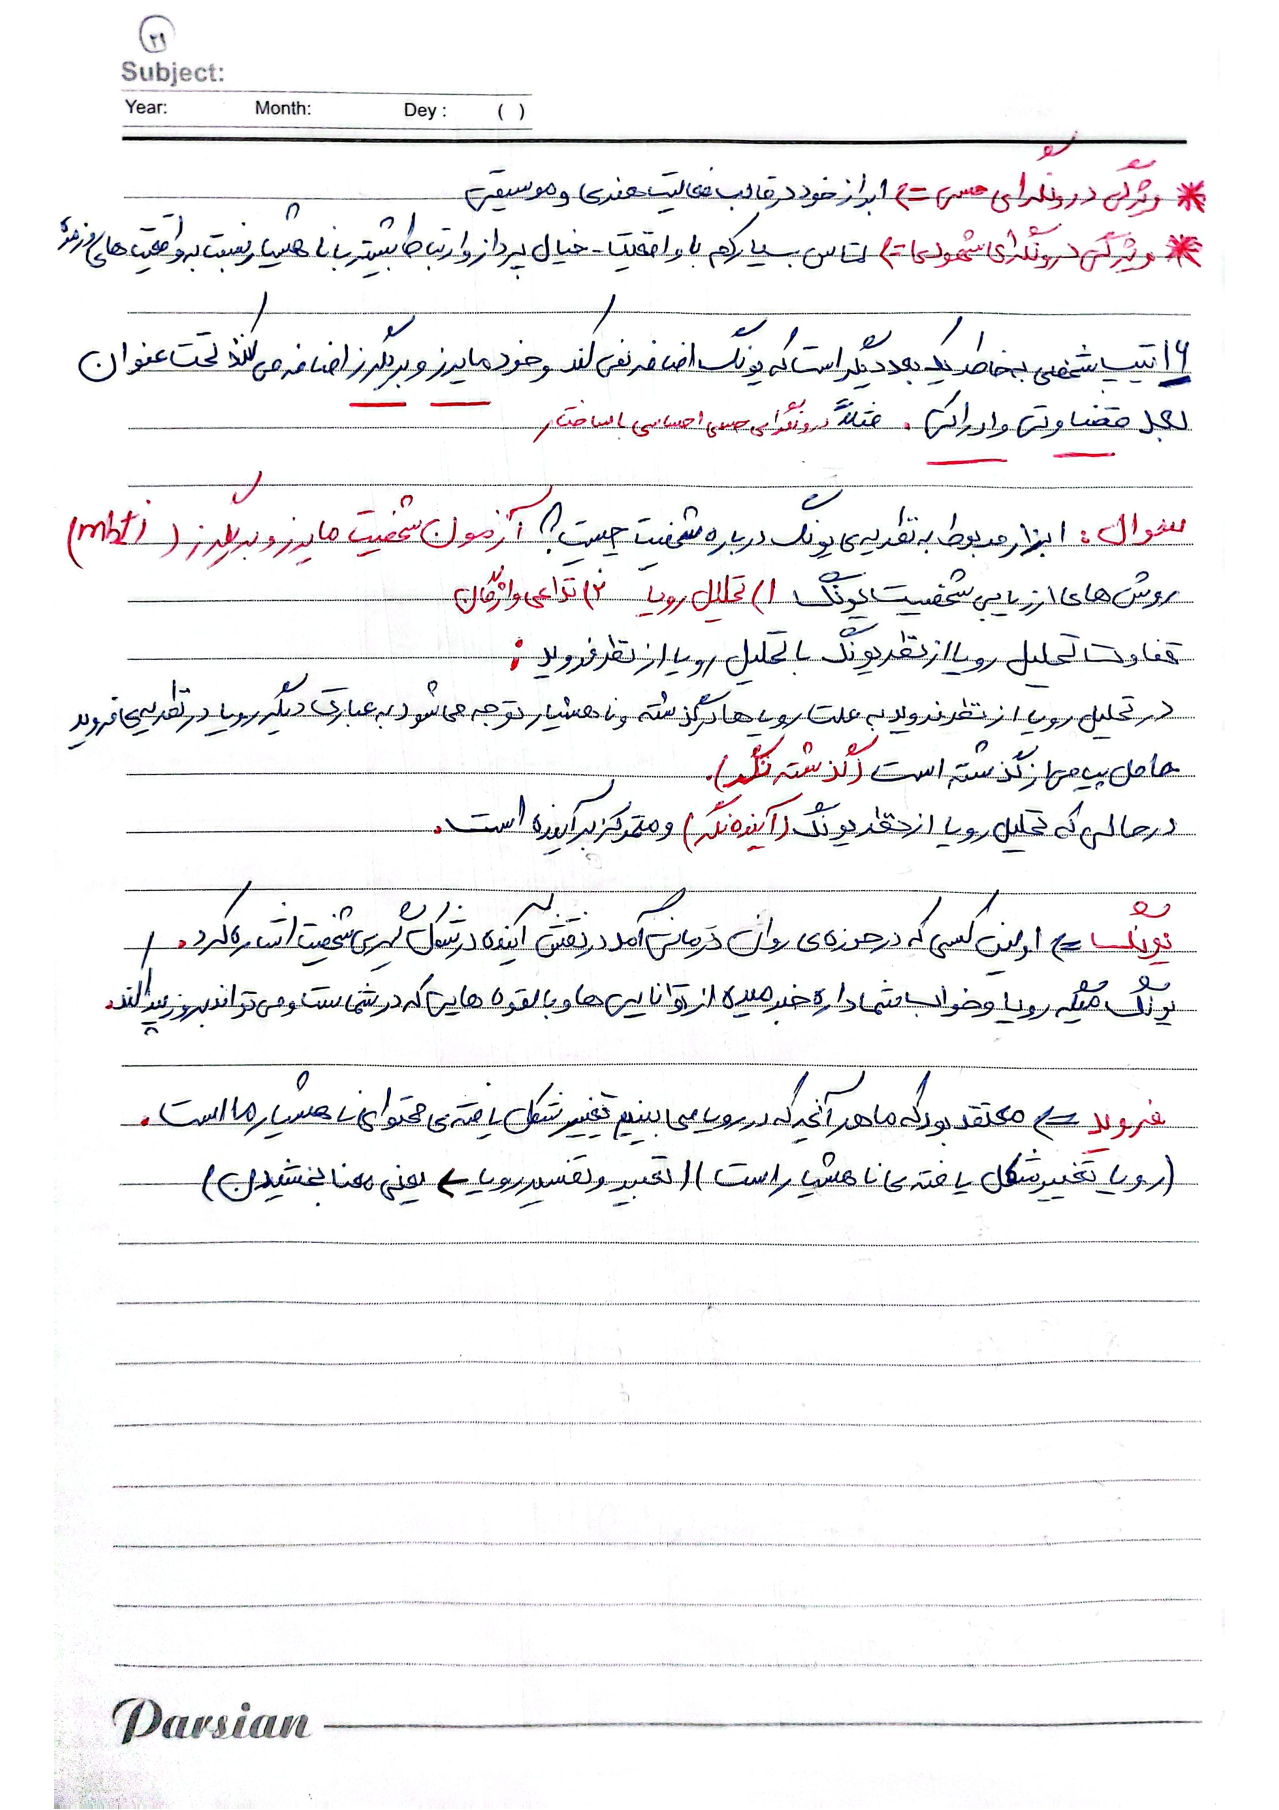 ۲۱
Subject:
Year: Month: Dey : ( )
* ویژگی درونگرای حسی => ابراز خود در قالب فعالیت هنری و موسیقی
* ویژگی درونگرای شهودی => تماس بسیار کم با واقعیت - خیال پرداز و ارتباط بیشتر با ناهشیار نسبت به واقعیت های روزمره
۱۶ تیپ شخصی به خاطر یک بعد دیگر است که یونگ اضافه نمی کند و خود مایرز و بریگرز اضافه می کنند تحت عنوان
بعد قضاوتی و ادراکی. مثلاً درونگرای حسی احساسی با ساختار
سوال: ابزار مربوط به نظریه ی یونگ درباره شخصیت چیست؟ آزمون شخصیت مایرز و بریگرز (mbti)
روش های ارزیابی شخصیت یونگ ۱) تحلیل رویا ۲) تداعی واژگان
تفاوت تحلیل رویا از نظر یونگ با تحلیل رویا از نظر فروید :
در تحلیل رویا از نظر فروید به علت رویاها در گذشته و ناهشیار توجه می شود به عبارت دیگر رویا در نظریه ی فروید
حامل پیامی از گذشته است (گذشته نگر).
در حالی که تحلیل رویا از نظر یونگ (آینده نگر) و متمرکز بر آینده است.
یونگ => اولین کسی که در حوزه ی روان درمانی آمد در نقش آینده در شکل گیری شخصیت اشاره کرد.
یونگ میگه رویا و خواب شما داره خبر میده از توانایی ها و بالقوه هایی که در شماست و می تواند بروز پیدا کند.
فروید => معتقد بود که ما هر آنچه که در رویا می بینیم تغییر شکل یافته ی محتوای ناهشیار ما است.
(رویا تغییر شکل یافته ی ناهشیار است) (تعبیر و تفسیر رویا -> یعنی معنا بخشیدن)
Parsian